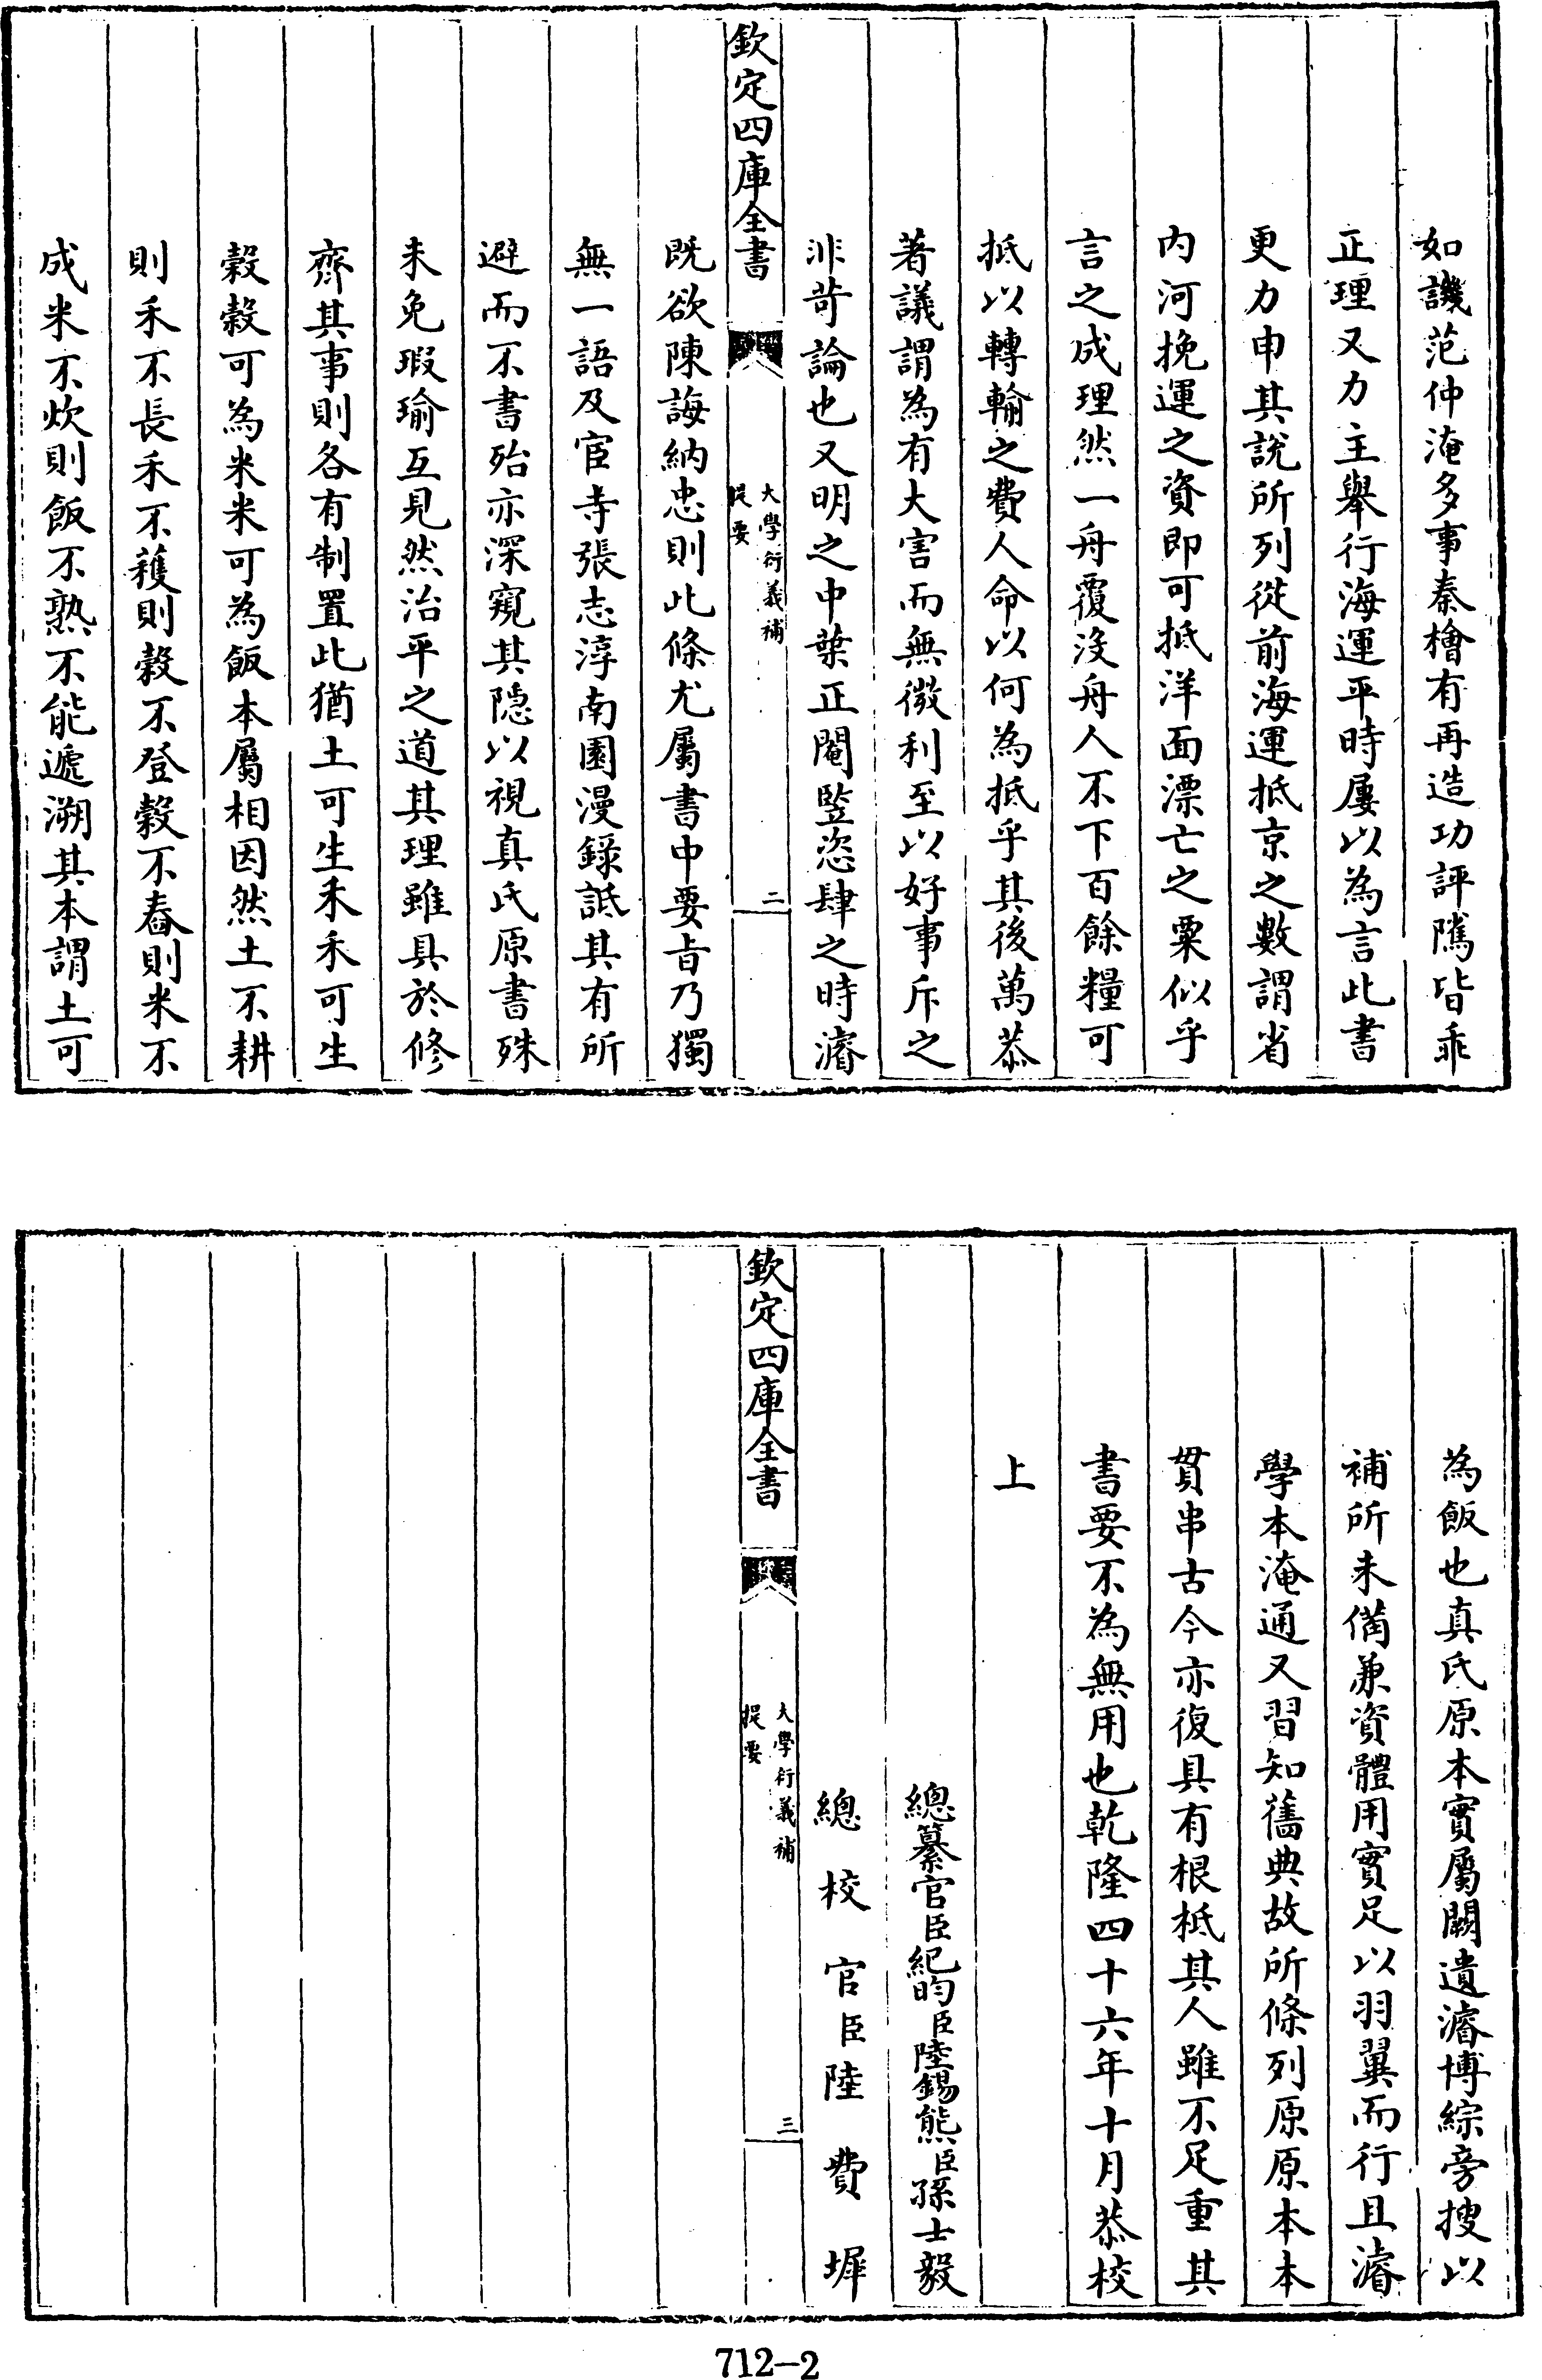 如譏范仲淹多事秦檜有再造功評隲皆乖
正理又力主舉行海運平時屢以為言此書
更力申其說所列從前海運抵京之數謂省
内河挽運之資即可抵洋面漂亡之粟似乎
言之成理然一舟覆没舟人不下百餘糧可
抵以轉輸之費人命以何為抵乎其後萬恭
著議謂為有大害而無微利至以好事斥之
非苛論也又明之中葉正閹豎恣肆之時濬
欽定四庫全書
大學衍義補
提要
二
既欲陳誨納忠則此條尤屬書中要㫖乃獨
無一語及宦寺張志淳南園漫錄詆其有所
避而不書殆亦深窺其隠以視真氏原書殊
未免瑕瑜互見然治平之道其理雖具於修
齊其事則各有制置此猶土可生禾禾可生
穀穀可為米米可為飯本屬相因然土不耕
則禾不長禾不穫則穀不登穀不舂則米不
成米不炊則飯不熟不能遞溯其本謂土可
為飯也真氏原本實屬闕遺濬博綜旁搜以
補所未備兼資體用實足以羽翼而行且濬
學本淹通又習知舊典故所條列原原本本
貫串古今亦復具有根柢其人雖不足重其
書要不為無用也乾隆四十六年十月恭校
上
總纂官臣紀昀臣陸錫熊臣孫士毅
總校官臣陸費墀
欽定四庫全書
大學衍義補
提要
三
712-2